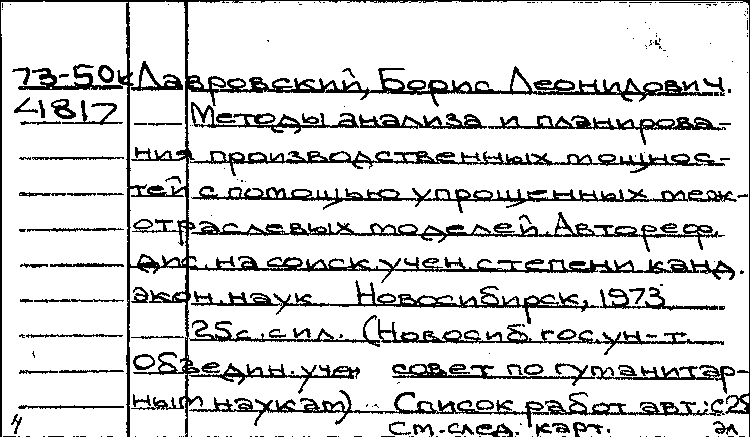 73-50к Лавровский, Борис Леонидович.
41817 Методы анализа и планирова-
ния производственных мощнос-
тей с помощью упрощенных меж-
отраслевых моделей. Автореф.
дис. на соиск. учен. степени канд.
экон. наук. Новосибирск, 1973.
25с. с ил. (Новосиб. гос. ун-т.
Объедин. учен совет по гуманитар-
ным наукам) Список работ авт.: с 25
4 См. след. карт. эл